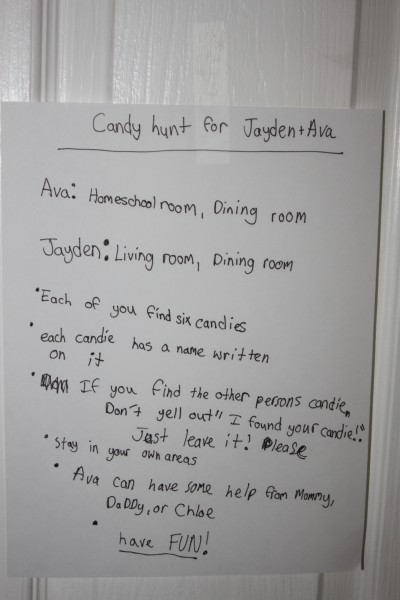 Candy hunt for Jayden+Ava
Ava: Homeschool room, Dining room
Jayden: Living room, Dining room
•Each of you find six candies
•each candie has a name written
on it
• If you find the other persons candie,
Don't yell out "I found your candie!"
Just leave it! Please
•Stay in your own areas
• Ava can have some help from Mommy,
DaDDy, or Chloe
•
have FUN!